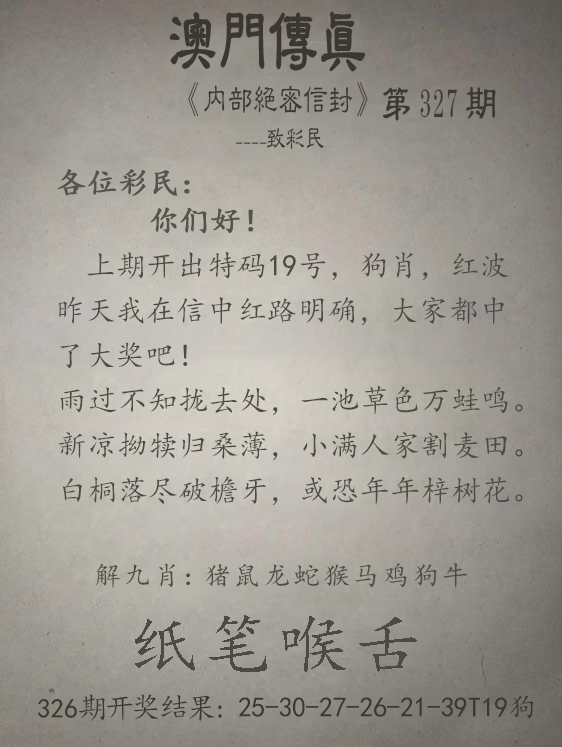 澳門傳真
《内部絕密信封》第327期
----致彩民
各位彩民：
你们好！
上期开出特码19号，狗肖，红波
昨天我在信中红路明确，大家都中
了大奖吧！
雨过不知拢去处，一池草色万蛙鸣。
新凉拗犊归桑薄，小满人家割麦田。
白桐落尽破檐牙，或恐年年梓树花。
解九肖：猪鼠龙蛇猴马鸡狗牛
纸笔喉舌
326期开奖结果：25-30-27-26-21-39T19狗